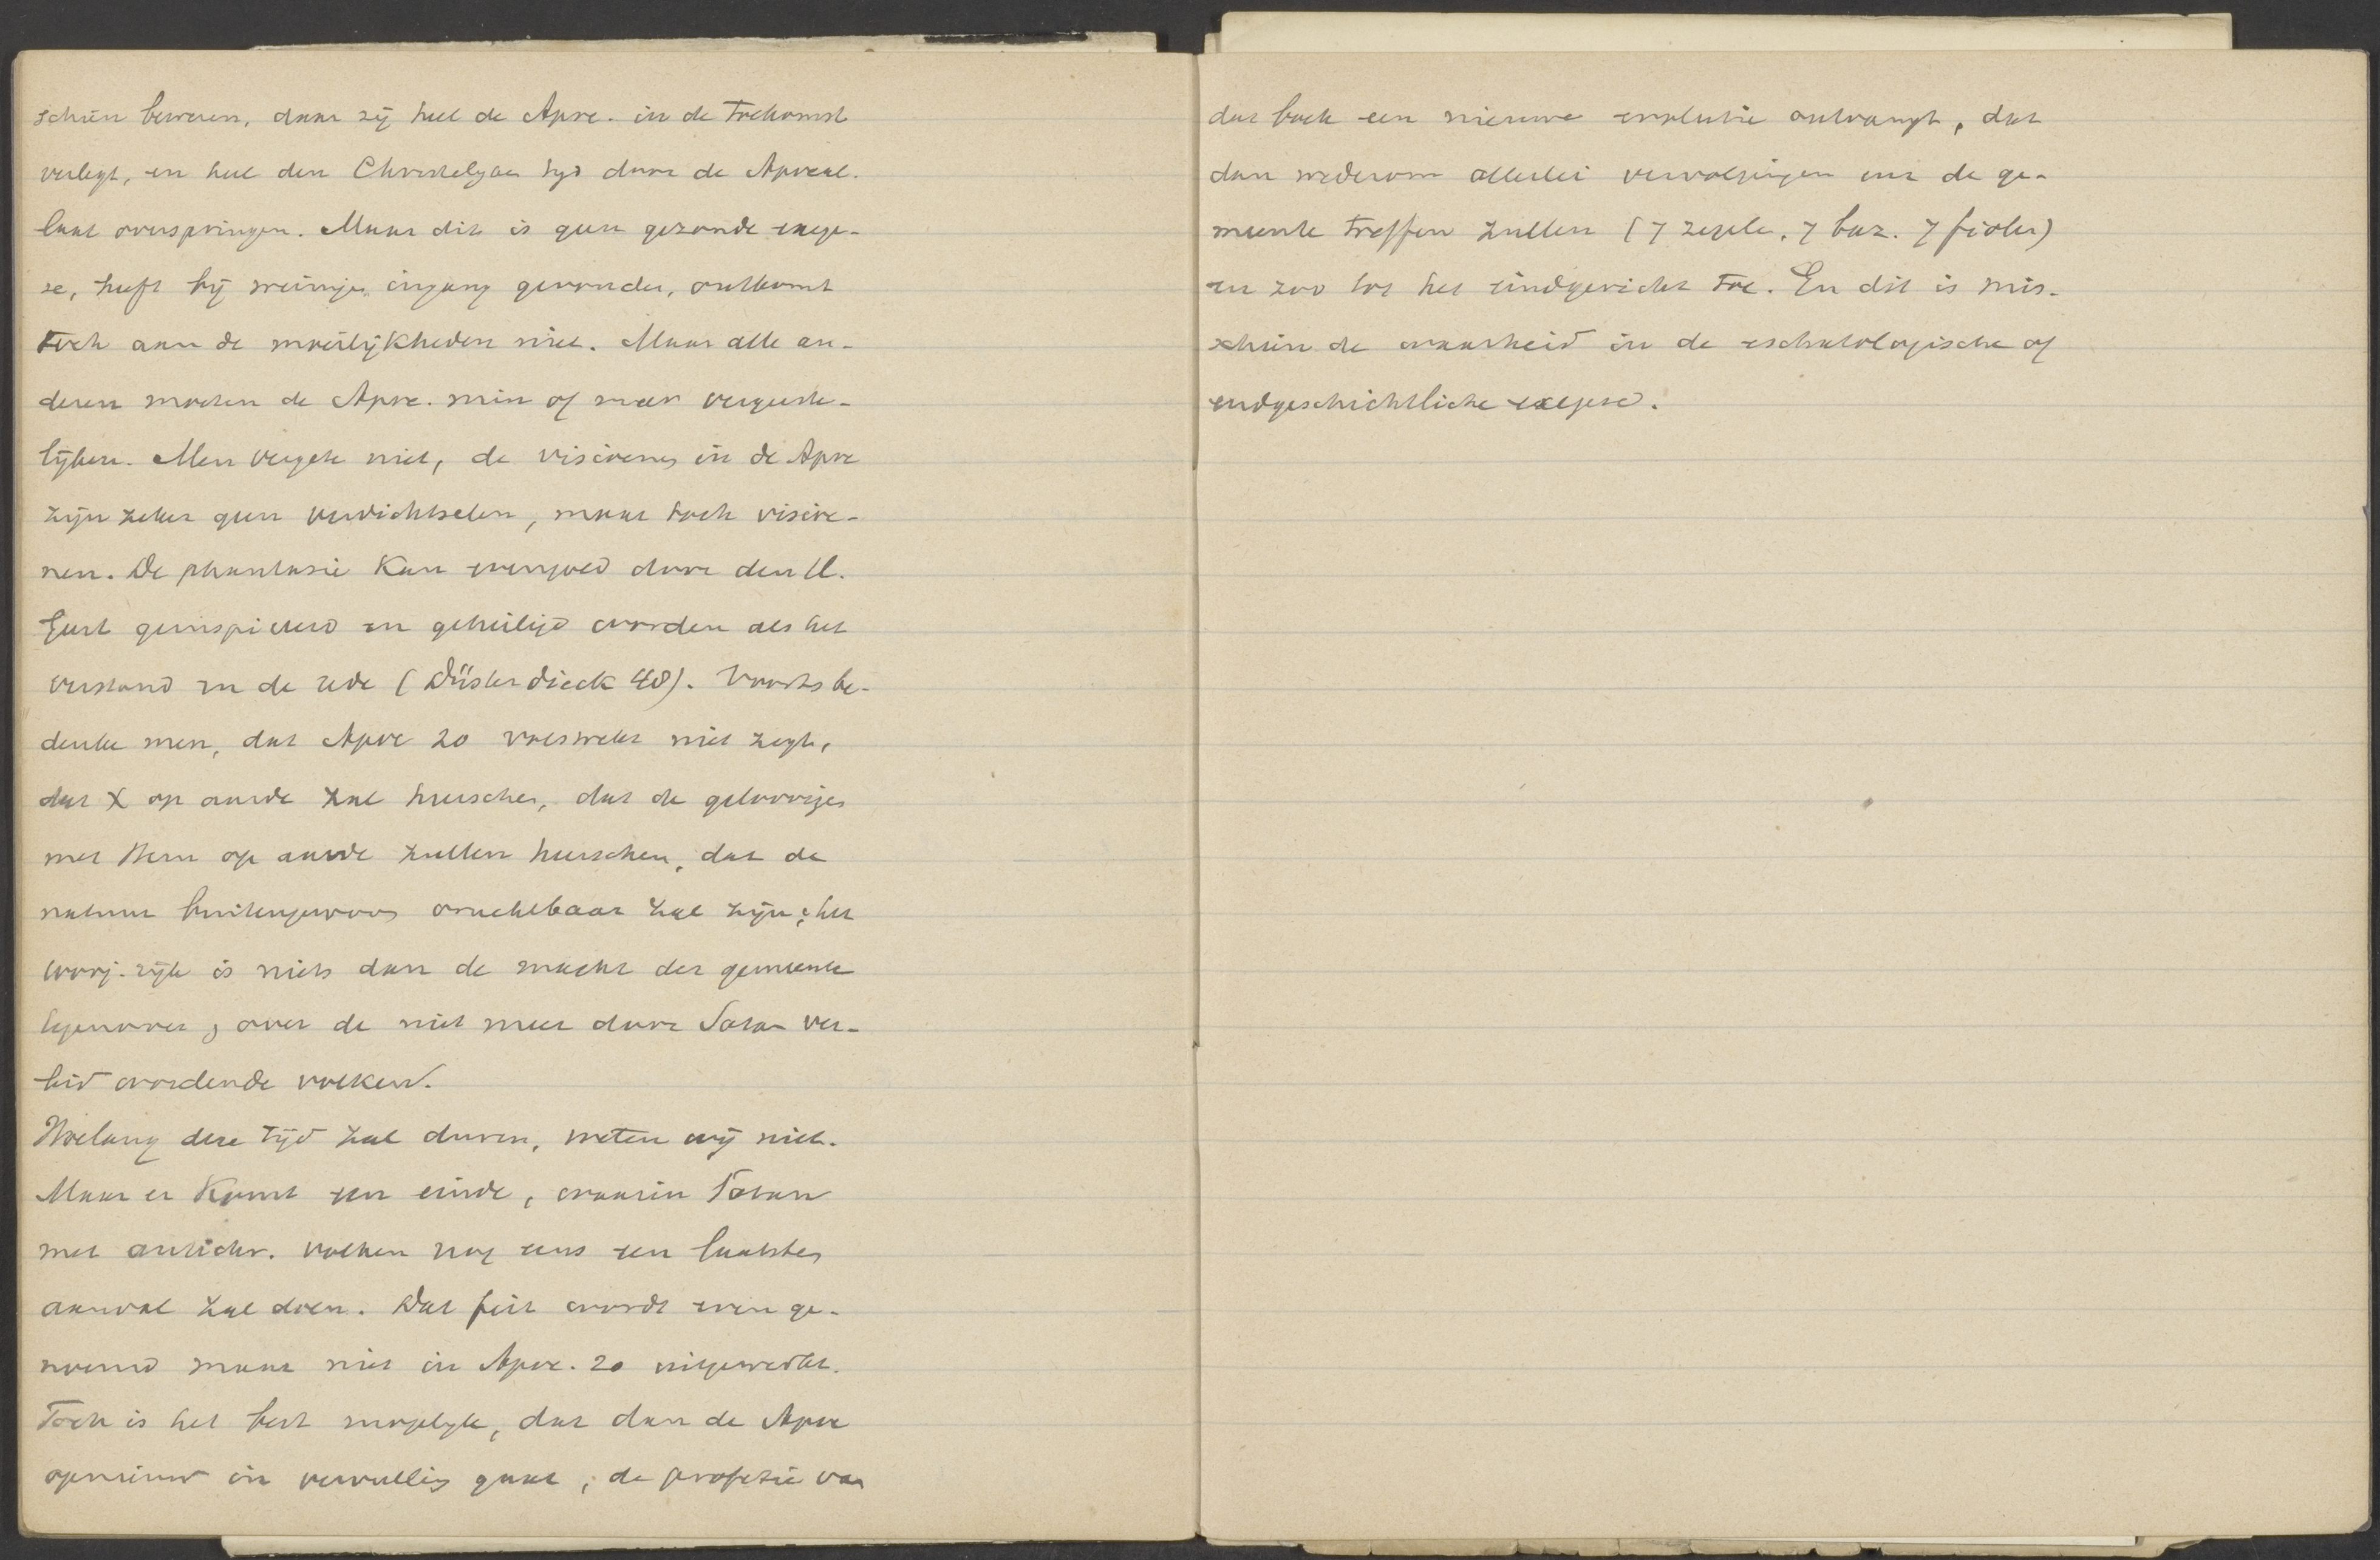 schien beweren, daar zij heel de Apoc. in de toekomst
verlegt, en heel den Christelyken tyd door de Apocal.
laat overspringen. Maar dit is geen gezonde exege-
se, heeft bij weinigen ingang gevonden, ontkomt
toch aan de moeilijkheden niet. Maar alle an-
deren moeten de Apoc. min of meer vergeeste-
lijken. Men vergete niet, de visioenen in de Apoc
zijn zeker geen verdichtselen, maar toch visioe-
nen. De phantasie kan evengoed door den H.
Geest geinspireerd en geheiligd worden als het
verstand en de rede (Düsterdieck 48). Voorts be-
denke men, dat Apoc 20 volstrekt niet zegt,
dat X op aarde zal heerschen, dat de geloovigen
met Hem op aarde zullen heerschen, dat de
natuur buitengewoon vruchtbaar zal zijn; het
rijk is niets dan de macht der gemeente
tegenover, over de niet meer door Satan ver-
leid wordende volken.
Hoelang deze tijd zal duren, weten wij niet.
Maar er komt een einde, waarin Satan
met antichr. volken nog eens een laatsten
aanval zal doen. Dat feit wordt even ge-
noemd maar niet in Apoc. 20 uitgewerkt.
Toch is het best mogelyk, dat dan de Apoc
opnieuw in vervulling gaat, de profetie van
dat boek een nieuwe evolutie ontvangt, dat
dan wederom allerlei vervolgingen enz de ge-
meente treffen zullen (7 zegels, 7 baz. 7 fiolen)
en zoo tot het eindgericht toe. En dit is mis-
schien de waarheid in de eschatologische of
endgeschichtliche exegese.